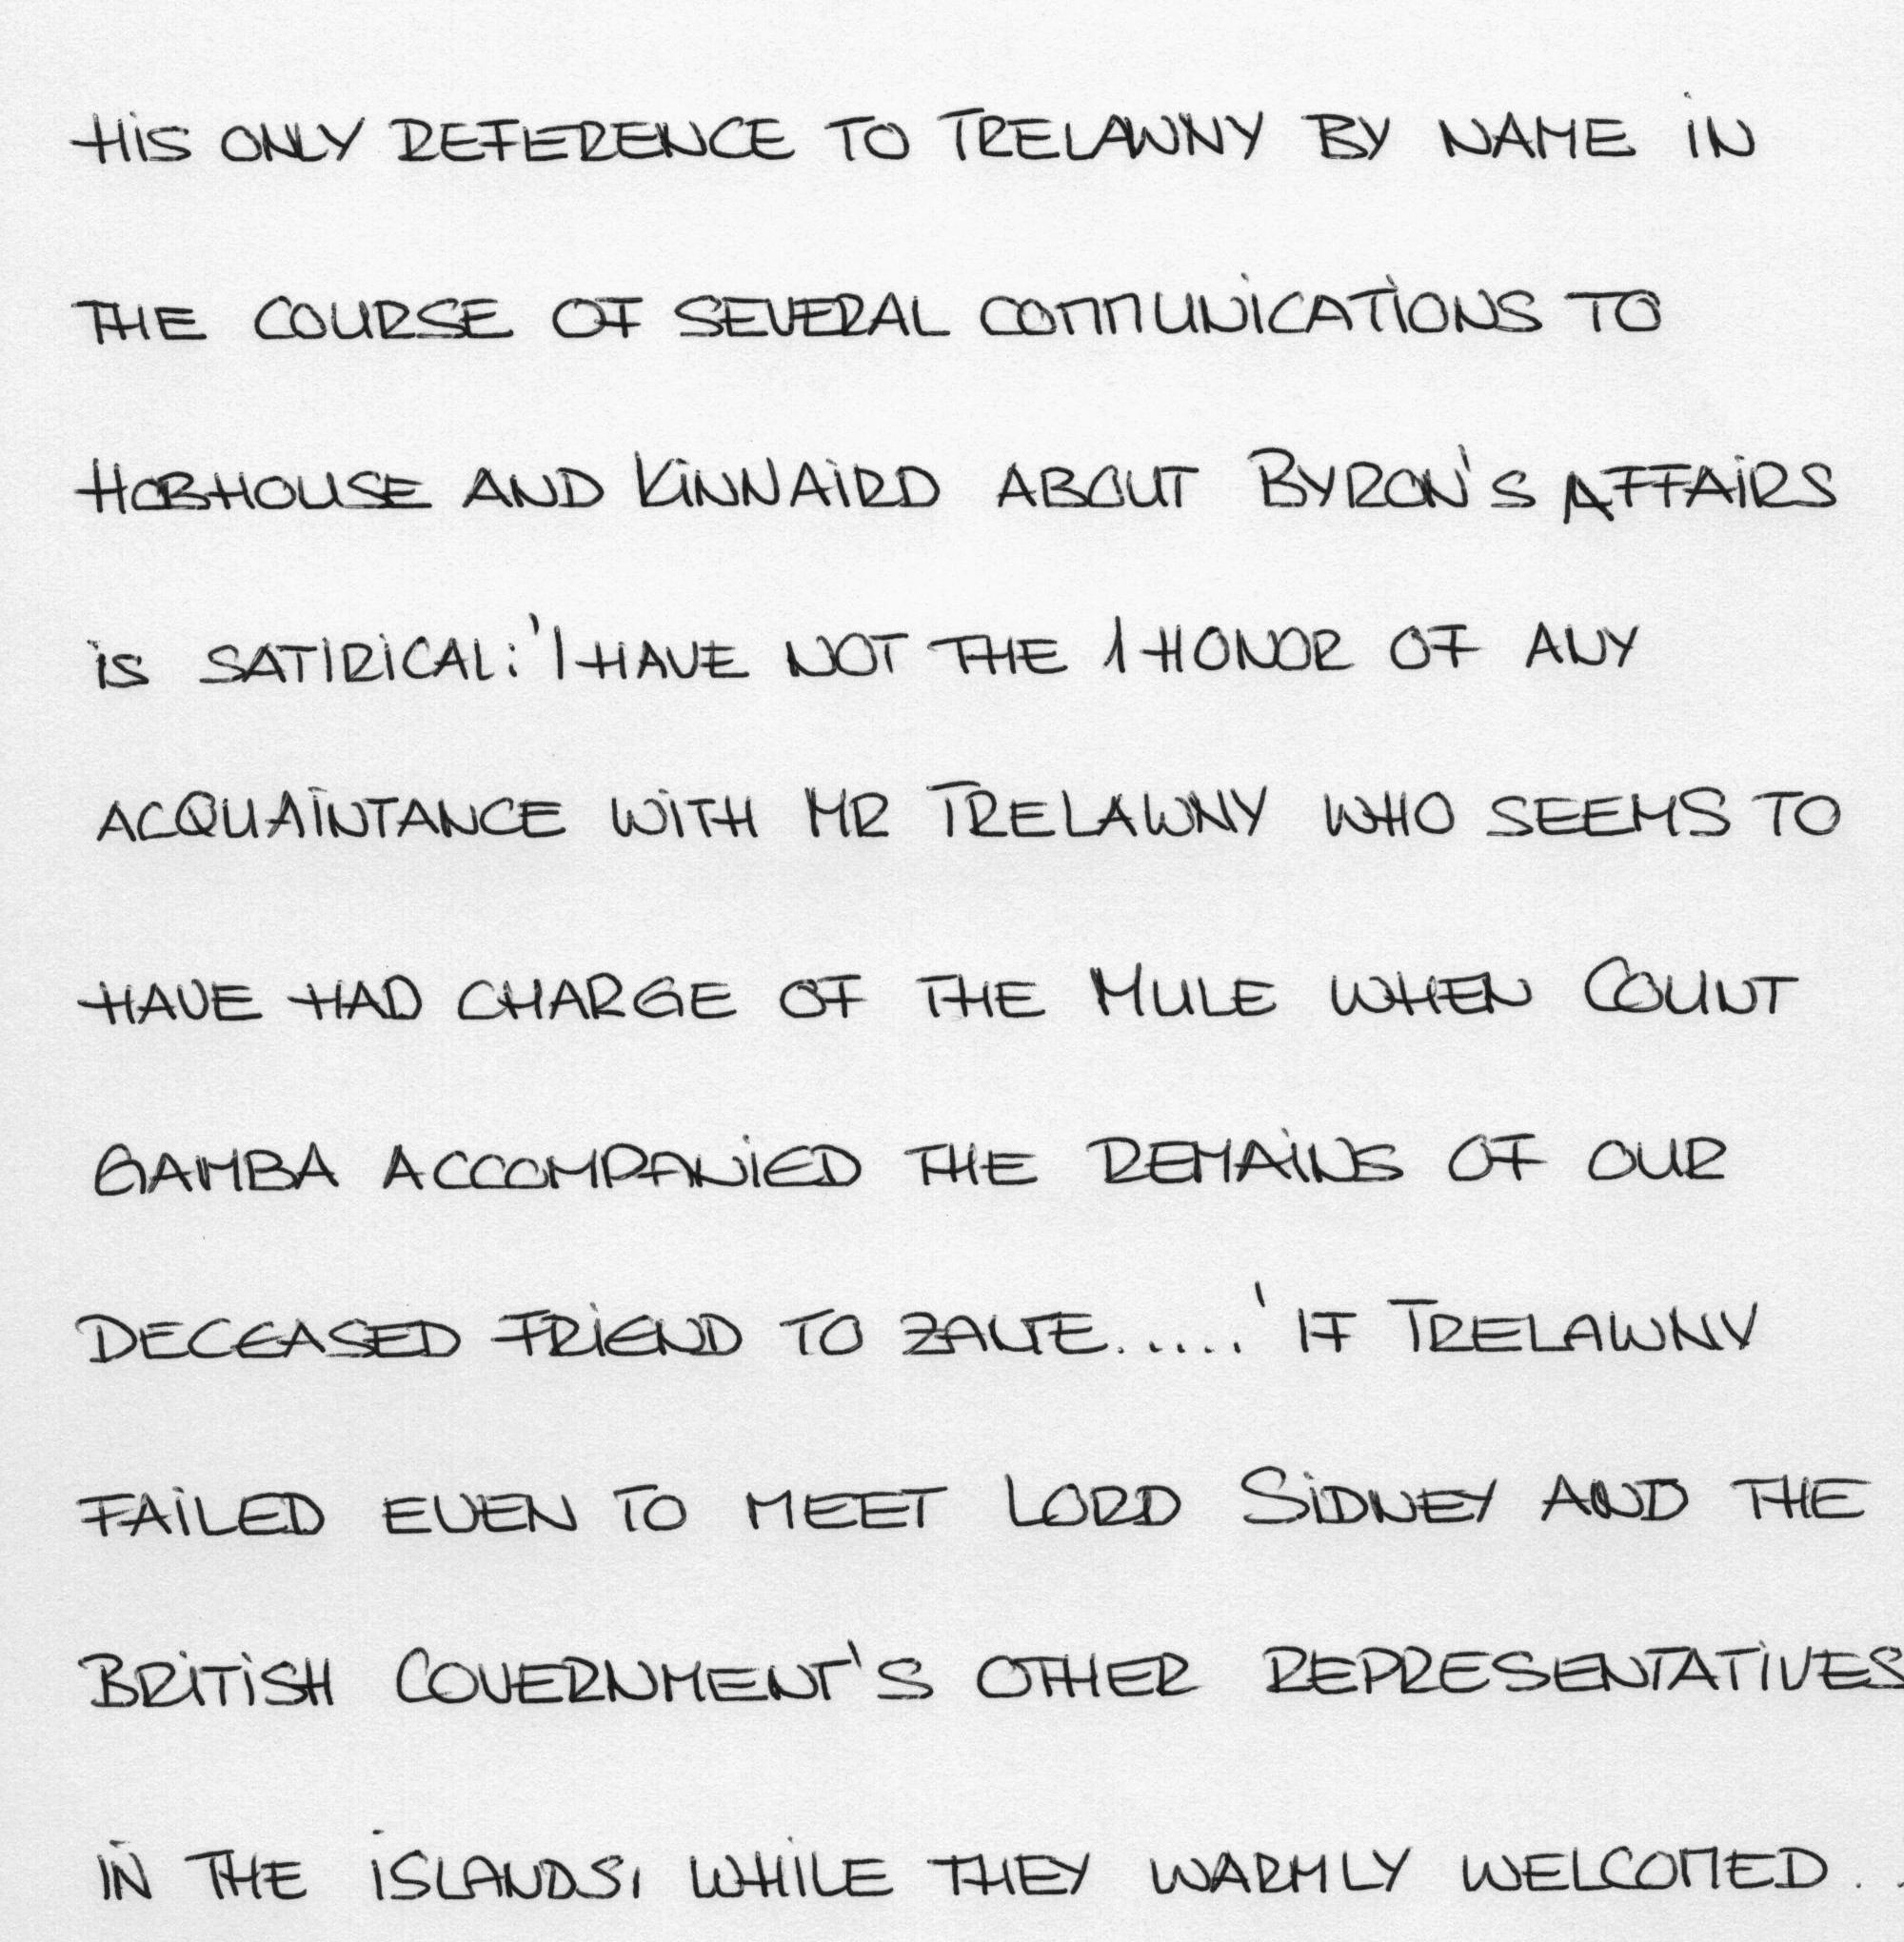 HIS ONLY REFERENCE TO TRELAWNY BY NAME IN
THE COURSE OF SEVERAL COMMUNICATIONS TO
HOBHOUSE AND KINNAIRD ABOUT BYRON'S AFFAIRS
IS SATIRICAL: 'I HAVE NOT THE HONOR OF ANY
ACQUAINTANCE WITH MR TRELAWNY WHO SEEMS TO
HAVE HAD CHARGE OF THE MULE WHEN COUNT
GAMBA ACCOMPANIED THE REMAINS OF OUR
DECEASED FRIEND TO ZANTE.....' IF TRELAWNY
FAILED EVEN TO MEET LORD SIDNEY AND THE
BRITISH GOVERNMENT'S OTHER REPRESENTATIVES
IN THE ISLANDS, WHILE THEY WARMLY WELCOMED . .